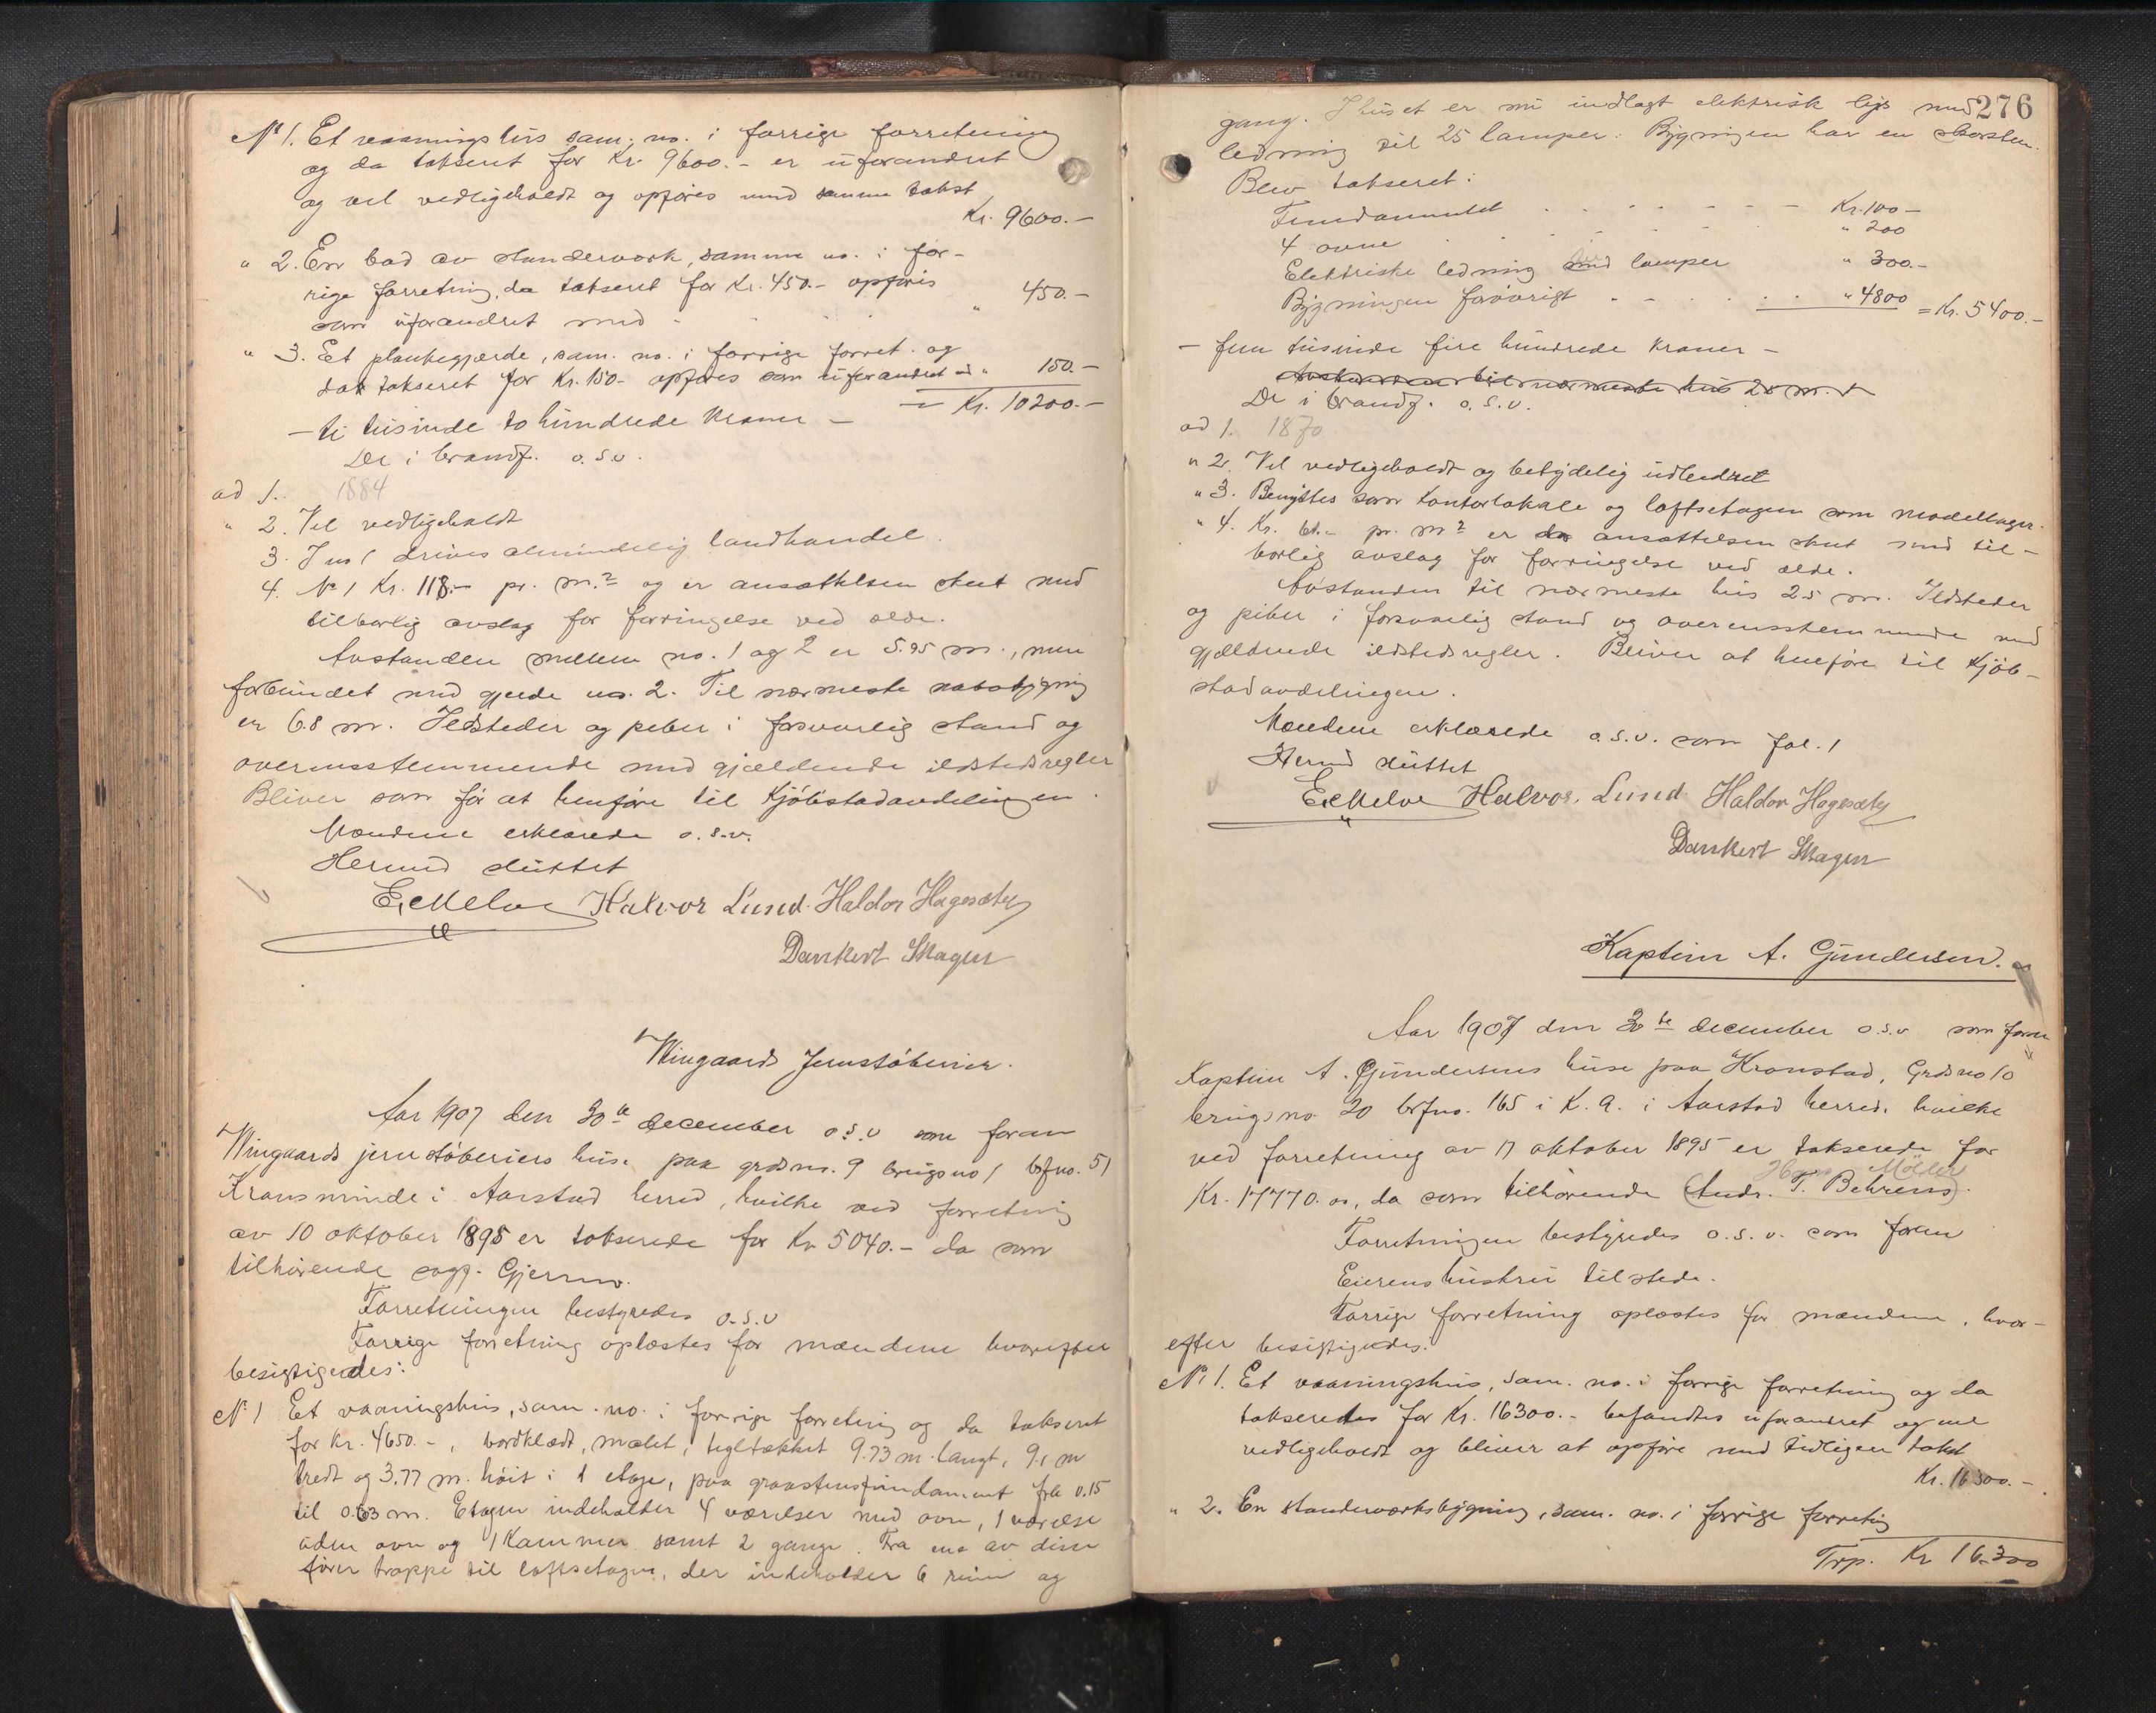 No 1. Et vaaningshus sam. no. i forrige forretning
og da takseret for Kr. 9600.- er uforandret
og vel vedligeholdt og opføres med samme takst
Kr. 9600.-
" 2. En bod av standerverk, samme no. i for-
rige forretning, da takseret for Kr. 450.- opføres
som uforandret med " 450.-
" 3. Et plankegjærde, sam. no. i forrige forret. og
da takseret for Kr. 150- opføres som uforandret " 150.-
= Kr. 10200.-
- ti tusinde to hundrede Kroner -
De i brandf. o.s.v.
ad 1. 1884
" 2. Vel vedligeholdt
3. I no 1 drives almindelig landhandel.
4. No 1 Kr. 118.- pr. m.2 og er ansættelsen skeet med
tilbørlig avslag for forringelse ved ælde.
Avstanden mellem no. 1 og 2 er 5.95 m., men
forbundet med gjerde no. 2. Til nærmeste nabobygning
er 6.8 m. Ildsteder og piber i forsvarlig stand og
overensstemmende med gjældende ildstedsregler
Bliver som før at henføre til Kjøbstadavdelingen.
Mændene erklærede o.s.v.
Hermed sluttet
E. Kelve Halvor Lund. Haldor Hagesæter
Dankert Skagen
Wingaards Jernstøberier.
Aar 1907 den 30te december o.s.v som foran
Wingaards jernstøberiers huse paa grdsno. 9 brugsno 1 brfno. 51
Kronsminde i Aarstad herred, hvilke ved forretning
av 10 oktober 1895 er takserede for Kr 5040.- da som
tilhørende sagf. Gjermo.
Forretningen bestyredes o.s.v
Forrige forretning oplæstes for mændene hvorefter
besigtigedes:
No 1 Et vaaningshus, sam. no. i forrige forretning og da takseret
for Kr. 4650.-, bordklædt, malet, tegltækket 9.73 m. langt, 9.1 m
bredt og 3.77 m. høit i 1 etage, paa graastensfundament fra 0.15
til 0.63 m. Etagen indeholder 4 værelser med ovn, 1 værelse
uden ovn og 1 Kammer samt 2 gange. Fra ene av disse
fører trappe til loftsetagen, der indeholder 6 rum og
276
gang. I huset er nu indlagt elektrisk lys med
ledning til 25 lamper. Bygningen har en skorsten.
Blev takseret:
Fundamentet Kr. 100-
4 ovne " 200
Elektriske ledning med lamper " 300.-
Bygningen forøvrigt " 4800 = Kr. 5400.-
- fem tusinde fire hundrede kroner -
Avstanden til nærmeste hus 25 m.
De i brandf. o.s.v.
ad 1. 1870
" 2. Vel vedligeholdt og betydelig udbedret
" 3. Benyttes som kontorlokale og loftsetagen som modellager.
" 4. Kr. 61.- pr. m2 er ansættelsen skeet med til-
børlig avslag for forringelse ved ælde.
Avstanden til nærmeste hus 25 m. Ildsteder
og piber i forsvarlig stand og overensstemmende med
gjældende ildstedsregler. Bliver at henføre til Kjøb-
stadavdelingen.
Mændene erklærede o.s.v. som fol. 1
Hermed sluttet
E. Kelve Halvor Lund Haldor Hagesæter
Dankert Skagen
Kaptein A. Gundersen.
Aar 1907 den 30te december o.s.v som foran
Kaptein A. Gundersens huse paa Kronstad, Grdsno 10
brugsno. 20 brfno. 165 i K. a. i Aarstad herred, hvilke
ved forretning av 17 oktober 1895 er takserede for
Kr. 17770.00, da som tilhørende (Andr. T. Behrens).
Møller
Forretningen bestyredes o.s.v. som foran
Eierens hustru tilstede.
Forrige forretning oplæstes for mændene, hvor-
efter besigtigedes:
No 1. Et vaaningshus, sam. no. i forrige forretning og da
takseredes for Kr. 16300.- befandtes uforandret og vel
vedligeholdt og bliver at opføre med tidligere takst
Kr. 16300.-
" 2. En standerverksbygning, sam. no. i forrige forretning
Trp. Kr 16300